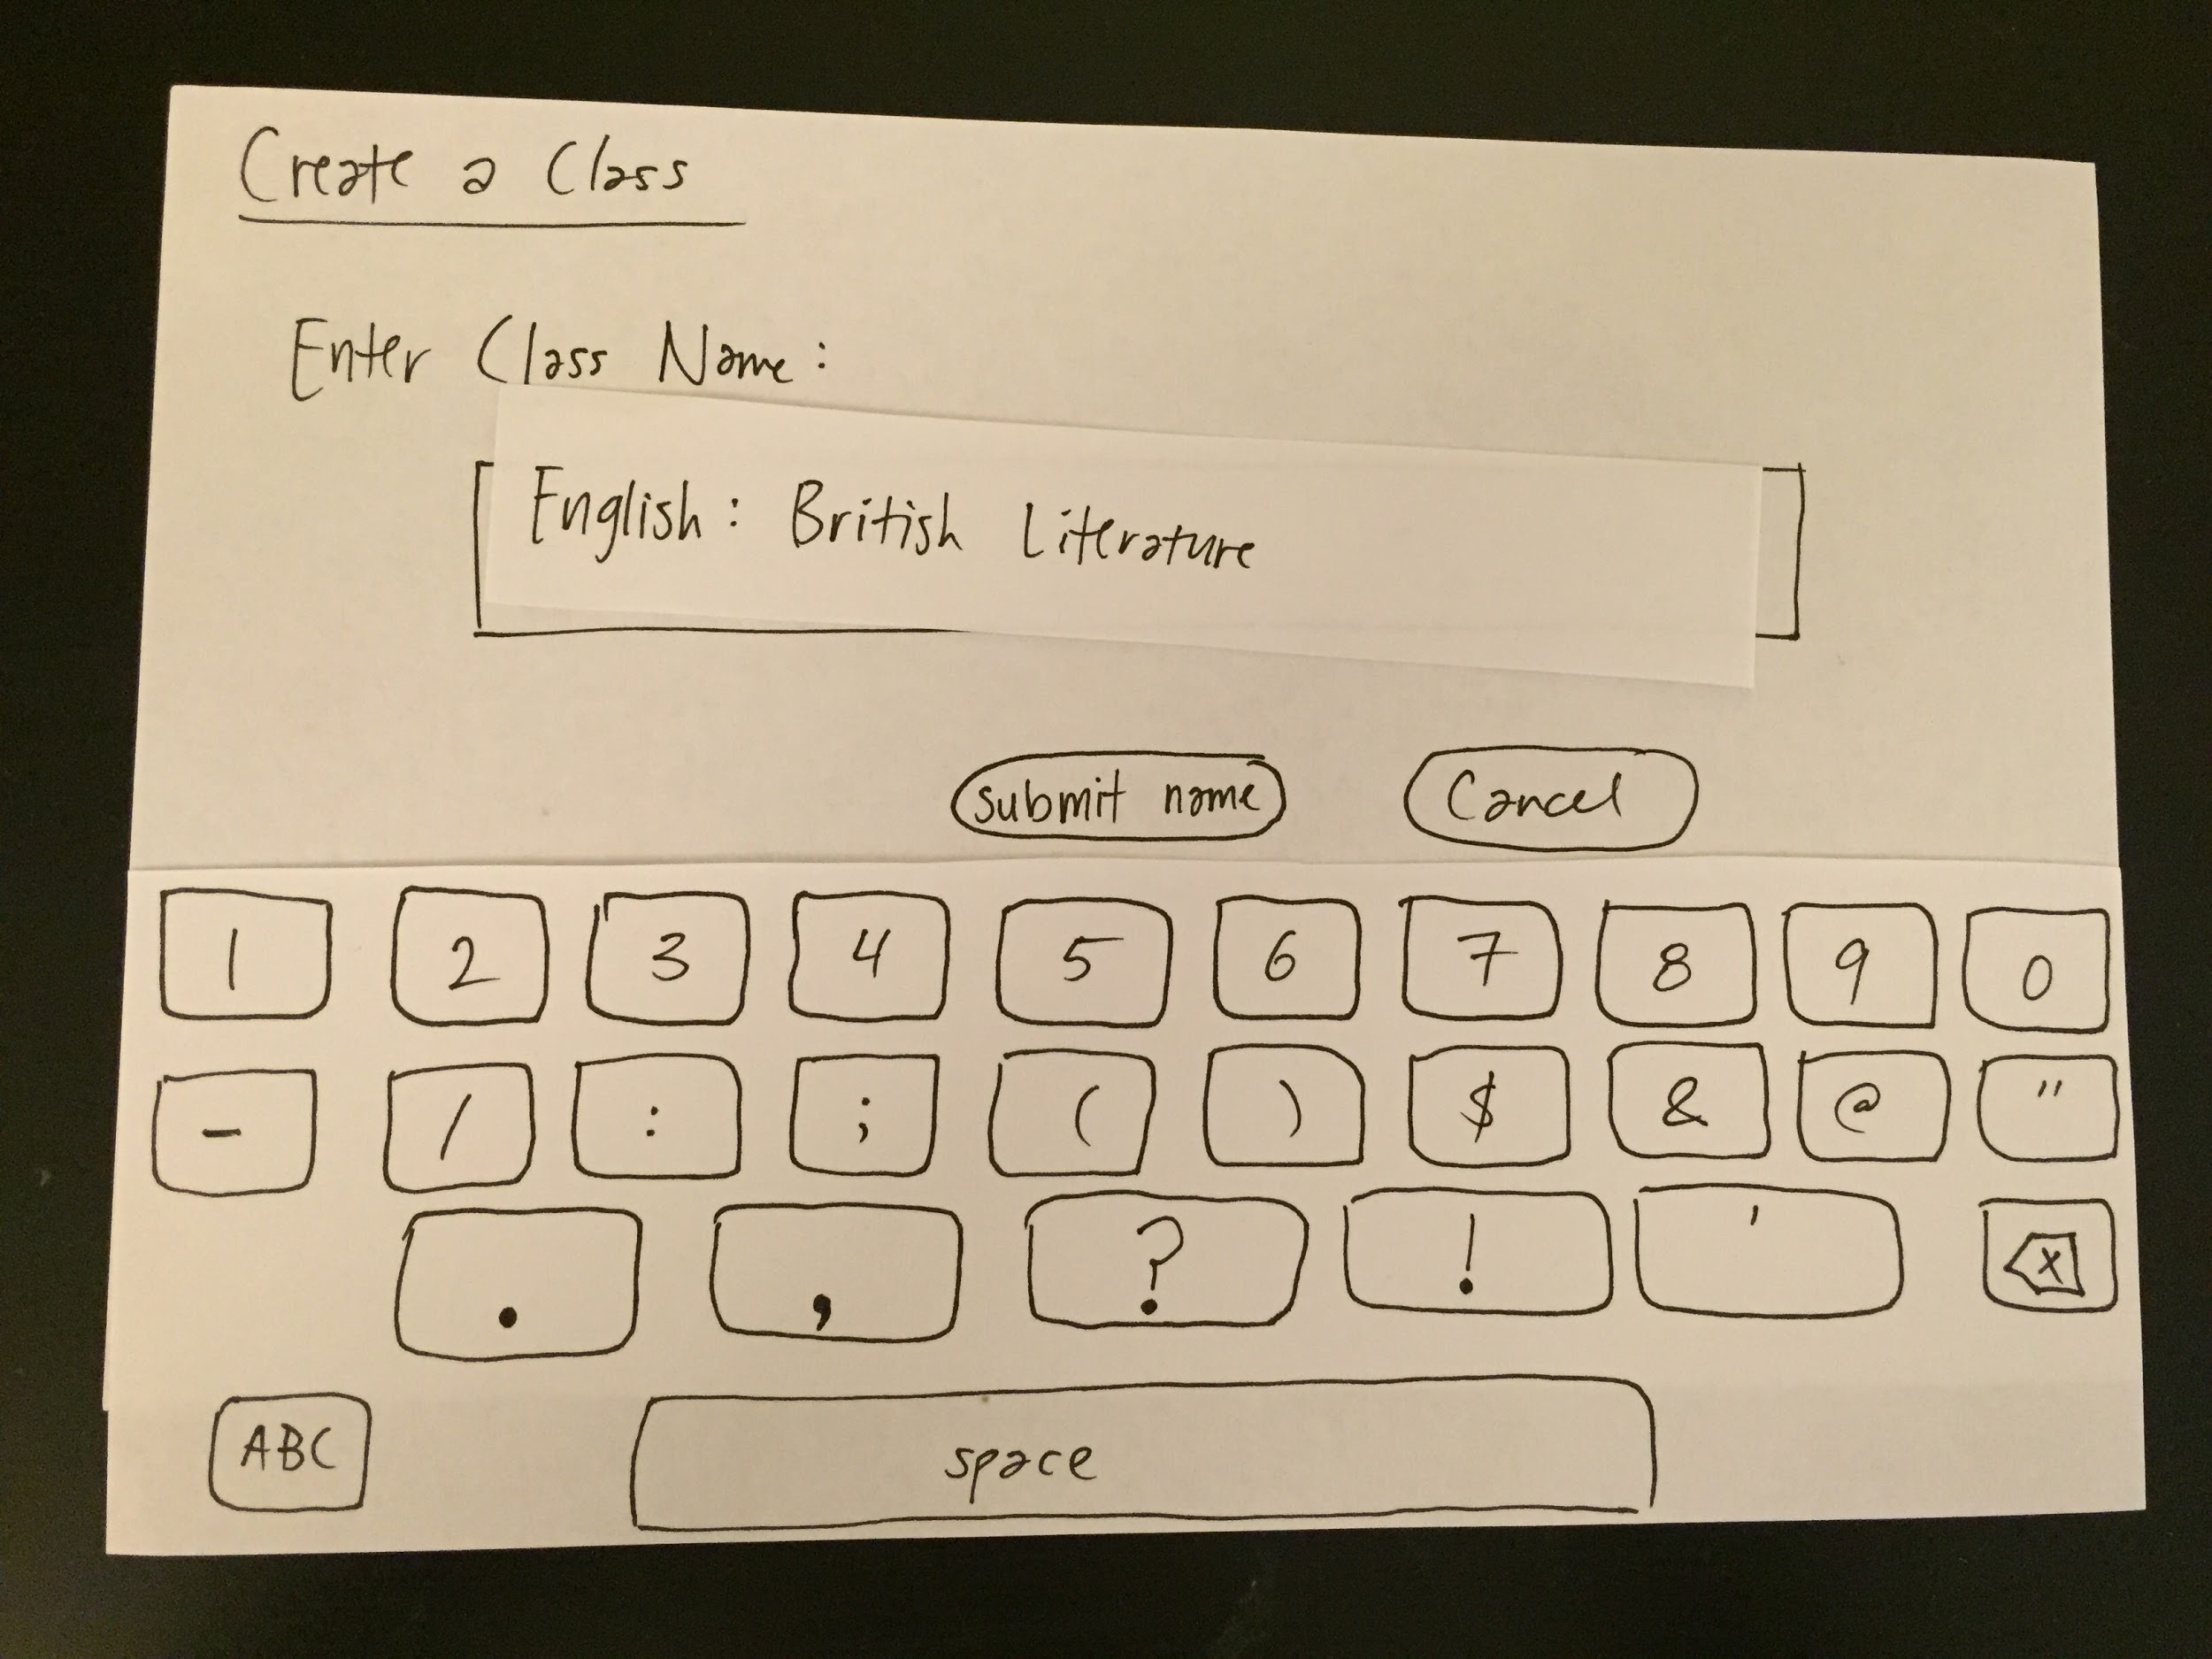 Create a Class
Enter Class Name:
English: British Literature
submit name Cancel
1 2 3 4 5 6 7 8 9 0
- / : ; ( ) $ & @ "
. , ? ! ' X
ABC space